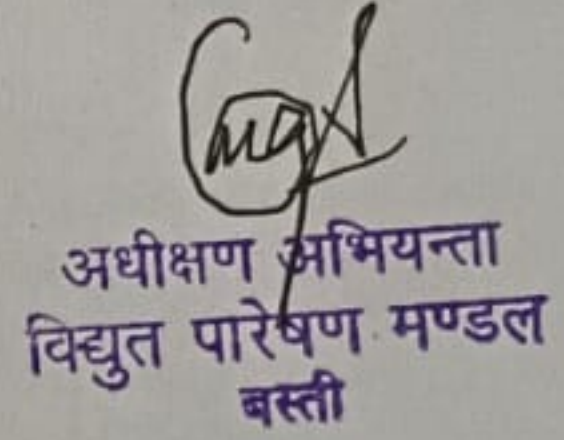 अधीक्षण अभियन्ता
विद्युत पारेषण मण्डल
बस्ती